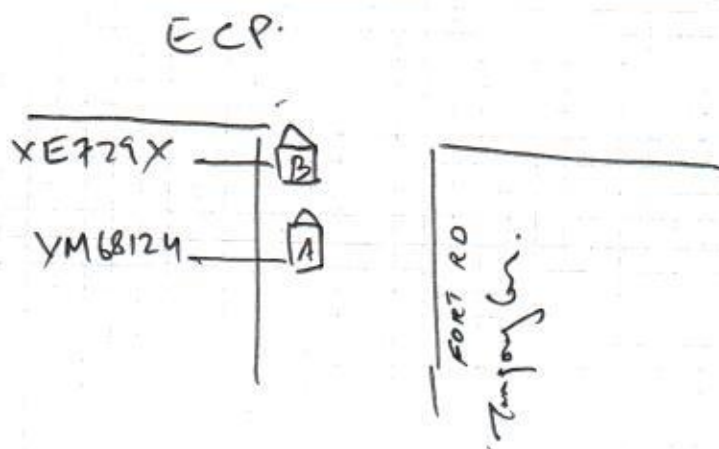 ECP.
XE729X
B
YM6812U
A
FORT RD
Tanjong